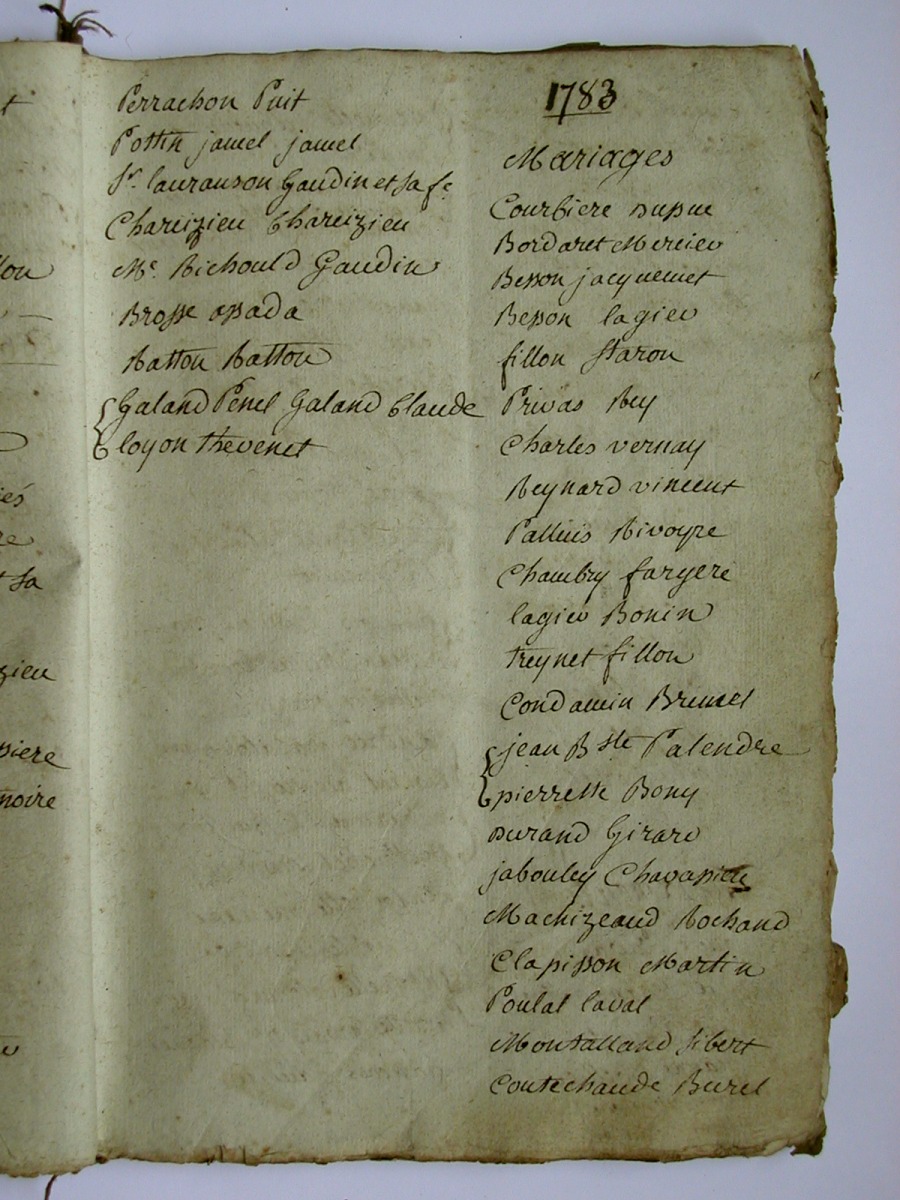 Perrachon Puit
Pottin jamel jamel
Sr. lauranson Gaudin et sa fe
Chareizieu Chareizieu
Me. Richould Gaudin
Brosse assada
Ratton Ratton
Galand Penel Galand Claude
loyon thevenet
1783
Mariages
Courbiere Dupuc
Bordaret Mercier
Besson jacquemet
Besson lagier
fillon Staron
Privas Rey
Charles vernay
Reynard vincent
Palluis Rivoyre
Chambry fargere
lagier Bonin
treynet fillon
Condamin Brunel
jean Bste Palendre
pierrette Bony
Durand Girard
jabouley
Machizeaud Rochand
Clapisson Martin
Poulat laval
Montalland Sibert
Coutechaude Burel